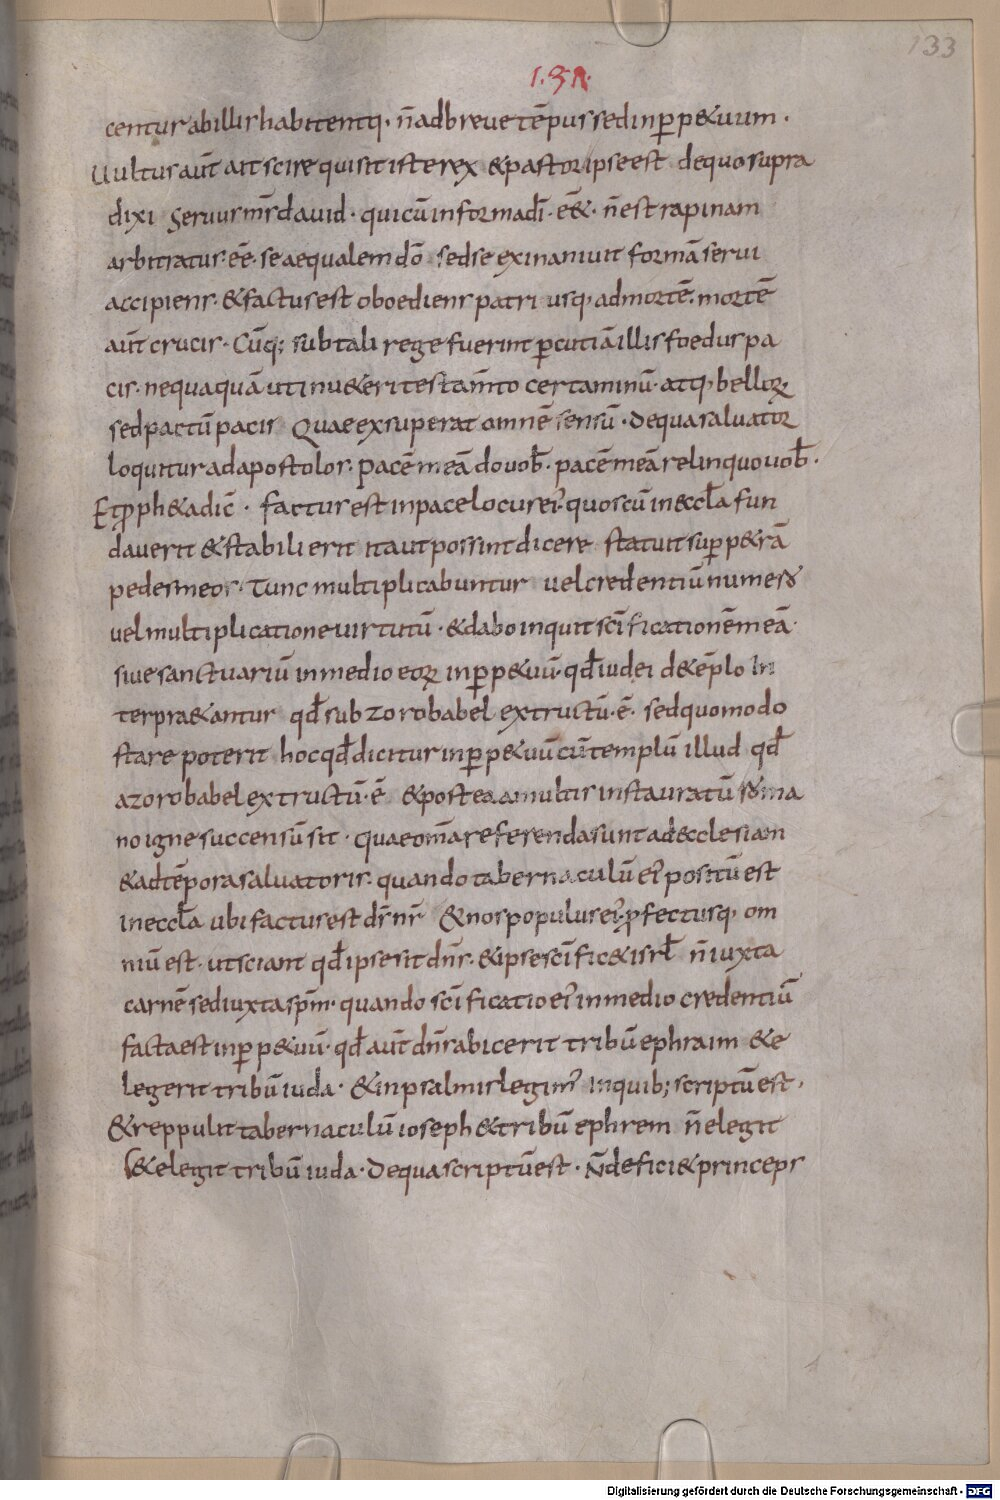 133
centur ab illis habitentq· n̄ ad breue tēpus sed in ꝑp&uum ·
Uultus aūt ait scire quis sit iste rex &pastor ipse est de quo supra
dixi seruus mr̄ dauid · qui cū in forma dī · e&· n̄ est rapinam
arbitratus eē· se aequalem dō sed se exinaniuit formā serui
accipiens· & factus est oboediens patri usq· ad mortē· mortē
aūt crucis· Cūq; sub tali rege fuerint ꝑcutiā illis foedus pa
cis· nequaquā uti nu& eri testam̄to certaminū· atq· belloꝝ
sed pactū pacis Quae exsuperat omnē sensū· De qua saluator
loquitur ad apostolos· pacē meā do uob̄· pacē meā relinquo uob̄·
Et ꝓph&a dic̄ · factus est in pace locus eī· quos cū in eccla fun
dauerit & stabilierit ita ut possint dicere statuit suꝑ p&rā
pedes meos· Tunc multiplicabuntur uel credentiū numero
uel multiplicatione uirtutū· & dabo inquit scīficationē meā·
siue sanctuariū in medio eoꝝ in ꝑp&uū· qd̄ iudei de tēplo in
terpra&antur qd̄ sub zorobabel extructū· ē· sed quomodo
stare poterit hoc qd̄ dicitur in ꝑp&uū cū templū illud qd̄
a zorobabel extructū· ē & postea a multis instauratū roma
no igne succensū sit · quae om̄a referenda sunt ad ecclesiam
& ad tēpora saluatoris· quando tabernaculū eī positū est
in eccla ubi factus est dr̄ nr̄ & nos populus eī· ꝓfectusq· om
niū est· ut sciant qd̄ ipse sit dn̄s· & ipse scīfic& isrl̄ n̄ iuxta
carnē sed iuxta spm̄· quando scīficatio eī in medio credentiū
facta est in ꝑp&uū· qd̄ aūt dn̄s abicerit tribū ephraim & e
legerit tribū iuda· & in psalmis legim̄ in quib; scriptū est·
& reppulit tabernaculū ioseph & tribū ephrem n̄ elegit
s& elegit tribū iuda· De qua scriptū est· N̄ defici& princeps
Digitalisierung gefördert durch die Deutsche Forschungsgemeinschaft - DFG